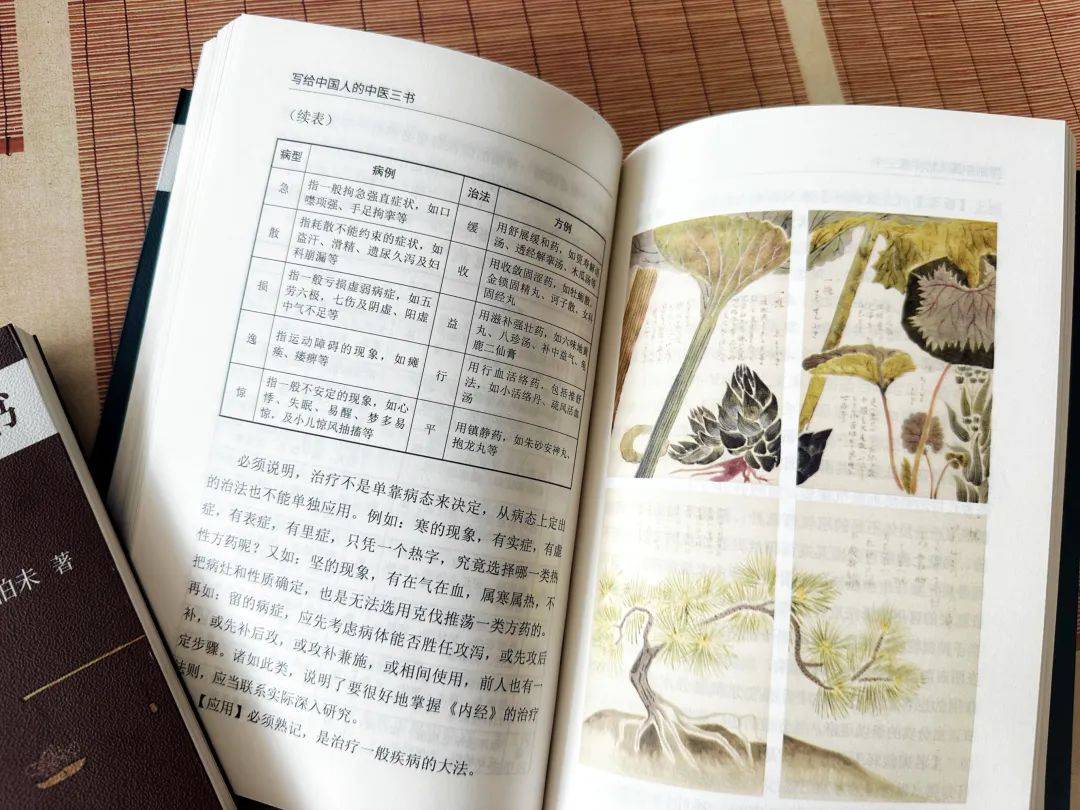 写给中国人的中医三书
（续表）
病型 病例 治法 方例
急 指一般拘急强直症状，如口
噤项强、手足拘挛等
缓 用舒展缓和药，如资寿解语
汤、透经解挛汤、木瓜汤等
散 指耗散不能约束的症状，如
盗汗、滑精、遗尿久泻及妇
科崩漏等
收 用收敛固涩药，如牡蛎散、
金锁固精丸、诃子散、女科
固经丸
损 指一般亏损虚弱病症，如五
劳六极，七伤及阴虚、阳虚
中气不足等
益 用滋补强壮药，如六味地黄
丸、八珍汤、补中益气、龟
鹿二仙膏
逸 指运动障碍的现象，如瘫
痪、痿痹等
行 用行血活络药，包括推舒
法，如小活络丹、疏风活血
汤
惊 指一般不安定的现象，如心
悸、失眠、易醒、梦多易
惊，及小儿惊风抽搐等
平 用镇静药，如朱砂安神丸、
抱龙丸等
必须说明，治疗不是单靠病态来决定，从病态上定出
的治法也不能单独应用。例如：寒的现象，有实症，有虚
症，有表症，有里症，只凭一个热字，究竟选择哪一类热
性方药呢？又如：坚的现象，有在气在血，属寒属热，不
把病灶和性质确定，也是无法选用克伐推荡一类方药的。
再如：留的病症，应先考虑病体能否胜任攻泻，或先攻后
补，或先补后攻，或攻补兼施，或相间使用，前人也有一
定步骤。诸如此类，说明了要很好地掌握《内经》的治疗
法则，应当联系实际深入研究。
【应用】必须熟记，是治疗一般疾病的大法。
伯未 著